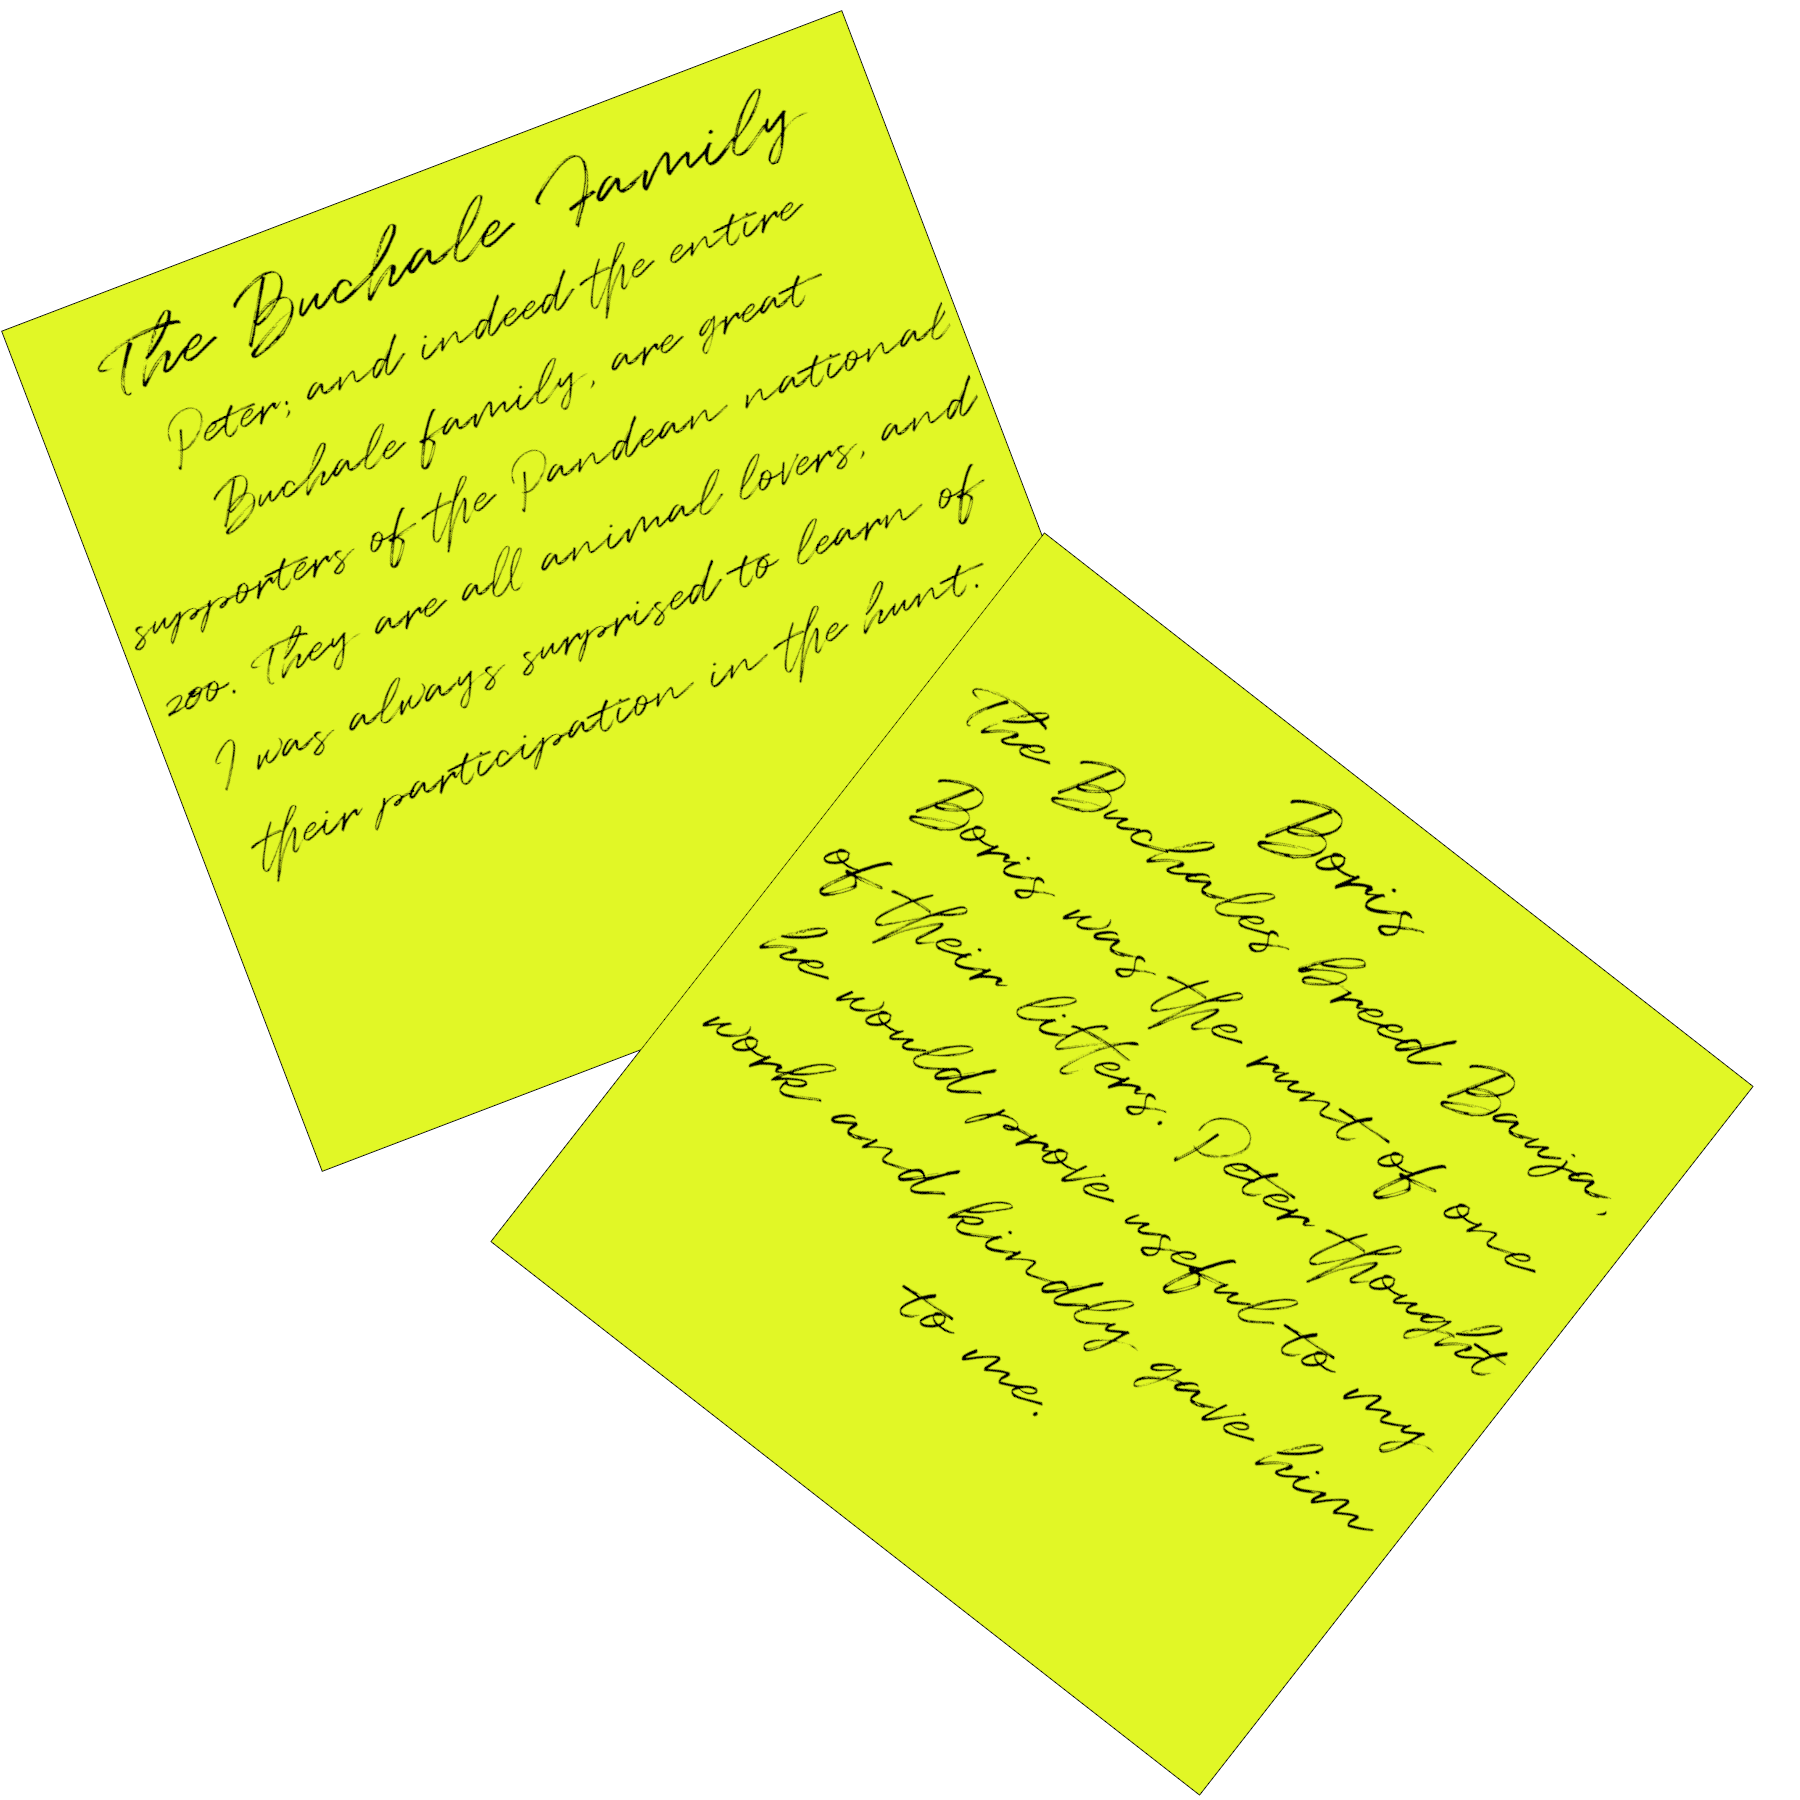 The Buchale Family
Peter; and indeed the entire
Buchale family, are great
supporters of the Pandean national
zoo. They are all animal lovers, and
I was always surprised to learn of
their participation in the hunt.
Boris
The Buchales breed Bauja,
Boris was the runt of one
of their litters. Peter thought
he would prove useful to my
work and kindly gave him
to me.